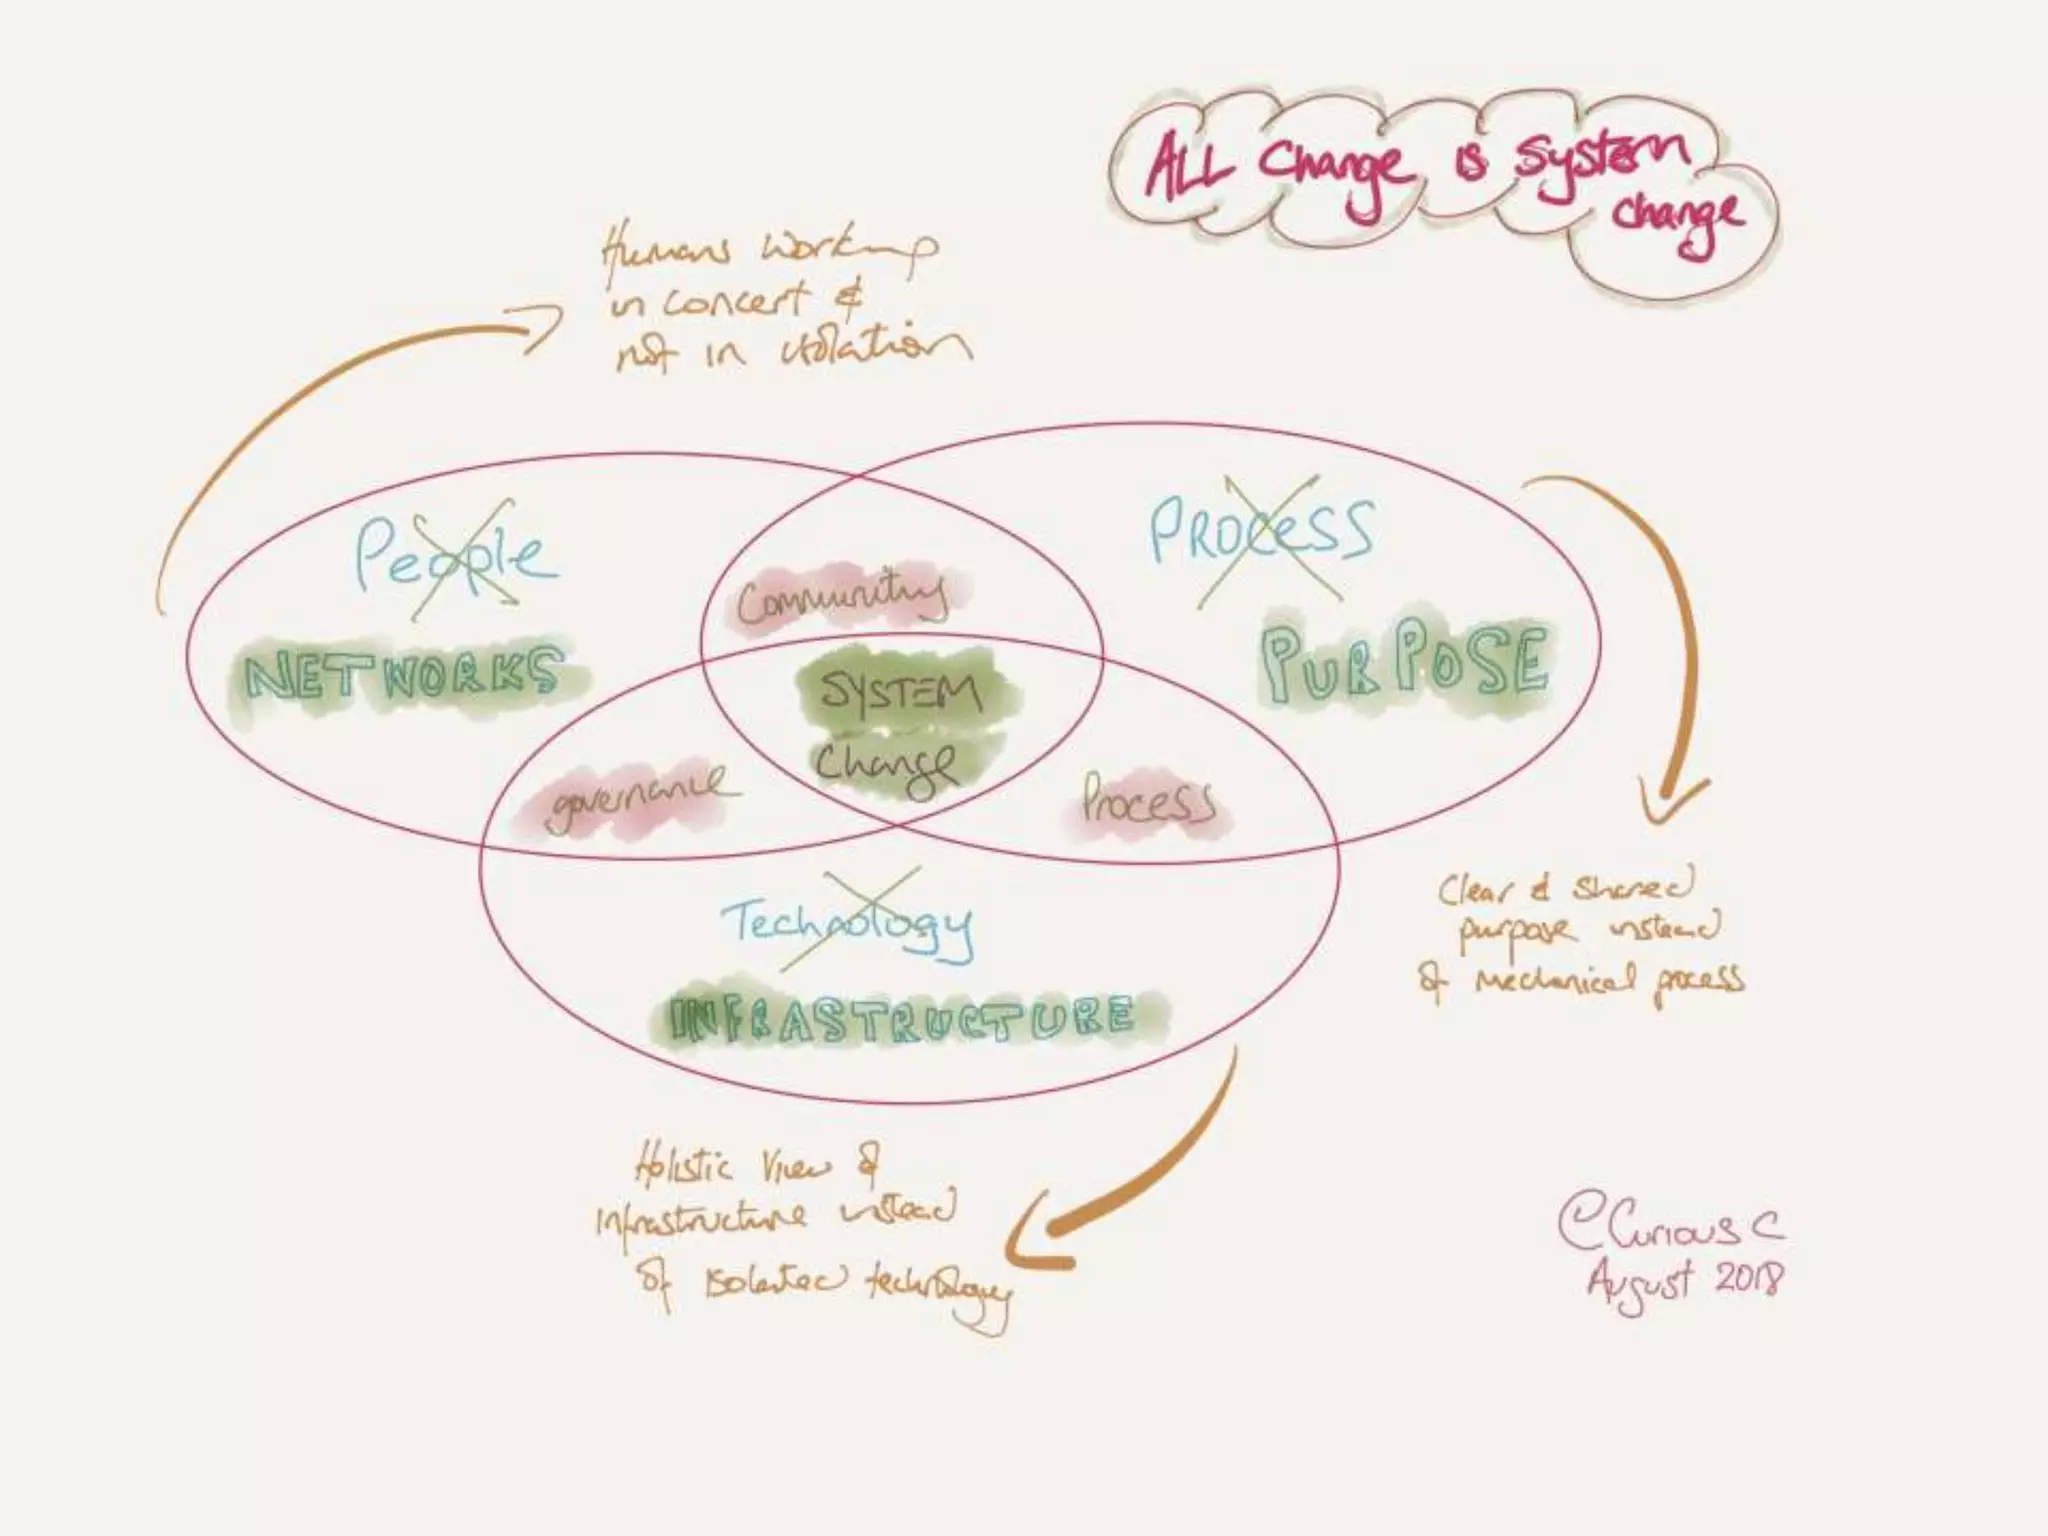 ALL Change is System
change
Humans working
in concert &
not in isolation
People
PROCESS
Community
NETWORKS
PURPOSE
SYSTEM
Change
governance
Process
Technology
INFRASTRUCTURE
Clear & shared
purpose instead
of mechanical process
Holistic View of
Infrastructure instead
of isolated technology
@CuriousC
August 2018